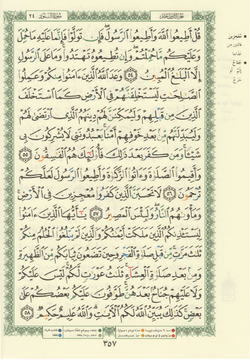 سورة النور ٢٤
قُلْ أَطِيعُوا۟ ٱللَّهَ وَأَطِيعُوا۟ ٱلرَّسُولَ فَإِن تَوَلَّوْا۟ فَإِنَّمَا عَلَيْهِ مَا حُمِّلَ
وَعَلَيْكُم مَّا حُمِّلْتُمْ وَإِن تُطِيعُوهُ تَهْتَدُوا۟ وَمَا عَلَى ٱلرَّسُولِ
إِلَّا ٱلْبَلَٰغُ ٱلْمُبِينُ ٥٤ وَعَدَ ٱللَّهُ ٱلَّذِينَ ءَامَنُوا۟ مِنكُمْ وَعَمِلُوا۟
ٱلصَّٰلِحَٰتِ لَيَسْتَخْلِفَنَّهُمْ فِى ٱلْأَرْضِ كَمَا ٱسْتَخْلَفَ
ٱلَّذِينَ مِن قَبْلِهِمْ وَلَيُمَكِّنَنَّ لَهُمْ دِينَهُمُ ٱلَّذِى ٱرْتَضَىٰ لَهُمْ
وَلَيُبَدِّلَنَّهُم مِّنۢ بَعْدِ خَوْفِهِمْ أَمْنًا يَعْبُدُونَنِى لَا يُشْرِكُونَ بِى
شَيْـًٔا وَمَن كَفَرَ بَعْدَ ذَٰلِكَ فَأُو۟لَٰٓئِكَ هُمُ ٱلْفَٰسِقُونَ ٥٥
وَأَقِيمُوا۟ ٱلصَّلَوٰةَ وَءَاتُوا۟ ٱلزَّكَوٰةَ وَأَطِيعُوا۟ ٱلرَّسُولَ لَعَلَّكُمْ
تُرْحَمُونَ ٥٦ لَا تَحْسَبَنَّ ٱلَّذِينَ كَفَرُوا۟ مُعْجِزِينَ فِى ٱلْأَرْضِ
وَمَأْوَىٰهُمُ ٱلنَّارُ وَلَبِئْسَ ٱلْمَصِيرُ ٥٧ يَٰٓأَيُّهَا ٱلَّذِينَ ءَامَنُوا۟
لِيَسْتَـْٔذِنكُمُ ٱلَّذِينَ مَلَكَتْ أَيْمَٰنُكُمْ وَٱلَّذِينَ لَمْ يَبْلُغُوا۟ ٱلْحُلُمَ مِنكُمْ
ثَلَٰثَ مَرَّٰتٍ مِّن قَبْلِ صَلَوٰةِ ٱلْفَجْرِ وَحِينَ تَضَعُونَ ثِيَابَكُم مِّنَ ٱلظَّهِيرَةِ
وَمِنۢ بَعْدِ صَلَوٰةِ ٱلْعِشَآءِ ثَلَٰثُ عَوْرَٰتٍ لَّكُمْ لَيْسَ عَلَيْكُمْ
وَلَا عَلَيْهِمْ جُنَاحٌۢ بَعْدَهُنَّ طَوَّٰفُونَ عَلَيْكُم بَعْضُكُمْ عَلَىٰ
بَعْضٍ كَذَٰلِكَ يُبَيِّنُ ٱللَّهُ لَكُمُ ٱلْءَايَٰتِ وَٱللَّهُ عَلِيمٌ حَكِيمٌ ٥٨
٣٥٧